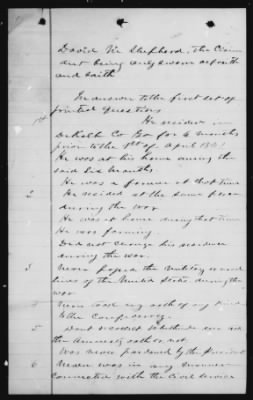 David Mc Shepherd, the Claim
ant being duly sworn deposeth
and saith
In answer to the first set of
printed questions
1st He resided in
DeKalb Co Ga for 6 months
prior to the 1st of April 1861
He was at his home during the
said six months.
He was a farmer at that time
2 He resided at the same place
during the war.
He was at home during that time
He was farming.
Did not change his residence
during the war.
3 Never passed the military
lines of the United States during the
war.
4 Never took any oath of any kind
to the Confederacy.
5 Dont recollect whether
the Amnesty oath or not.
Was never pardoned by the President
6 Never was in any manner
connected with the Civil service